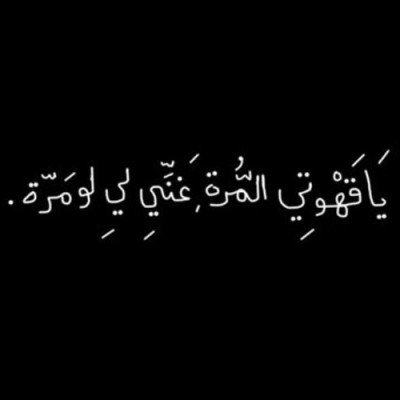 يَا قَهْوتِي المُّرة ، غَنِّي لِي لِو مَرّة .